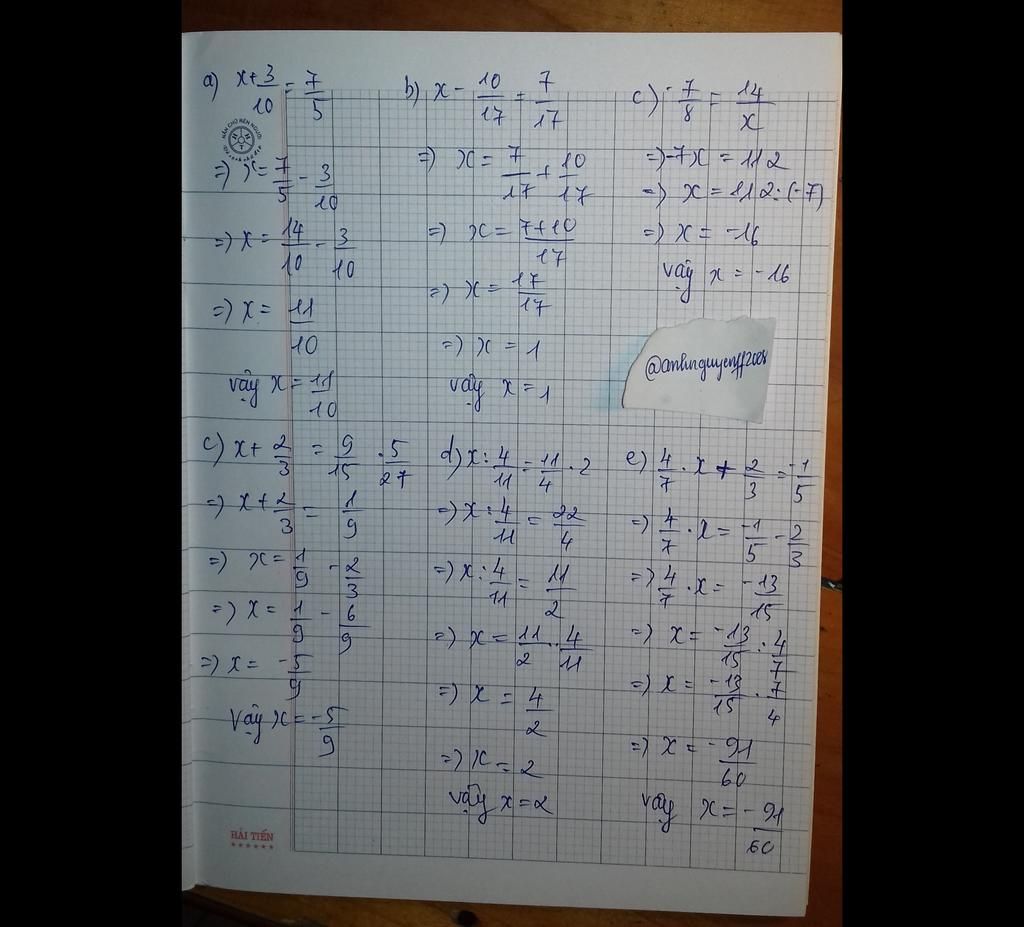 a) x + 3/10 = 7/5
=) x = 7/5 - 3/10
=) x = 14/10 - 3/10
=) x = 11/10
vậy x = 11/10
b) x - 10/17 = 7/17
=) x = 7/17 + 10/17
=) x = 7+10/17
=) x = 17/17
=) x = 1
vậy x = 1
c) -7/8 = 14/x
=) -7x = 112
=) x = 112 : (-7)
=) x = -16
vậy x = -16
@anhnguyenff2008
c) x + 2/3 = 9/15 . 5/27
=) x + 2/3 = 1/9
=) x = 1/9 - 2/3
=) x = 1/9 - 6/9
=) x = -5/9
vậy x = -5/9
d) x : 4/11 = 11/4 . 2
=) x : 4/11 = 22/4
=) x : 4/11 = 11/2
=) x = 11/2 . 4/11
=) x = 4/2
=) x = 2
vậy x = 2
e) 4/7 . x + 2/3 = -1/5
=) 4/7 . x = -1/5 - 2/3
=) 4/7 . x = -13/15
=) x = -13/15 : 4/7
=) x = -13/15 . 7/4
=) x = -91/60
vậy x = -91/60
HẢI TIẾN